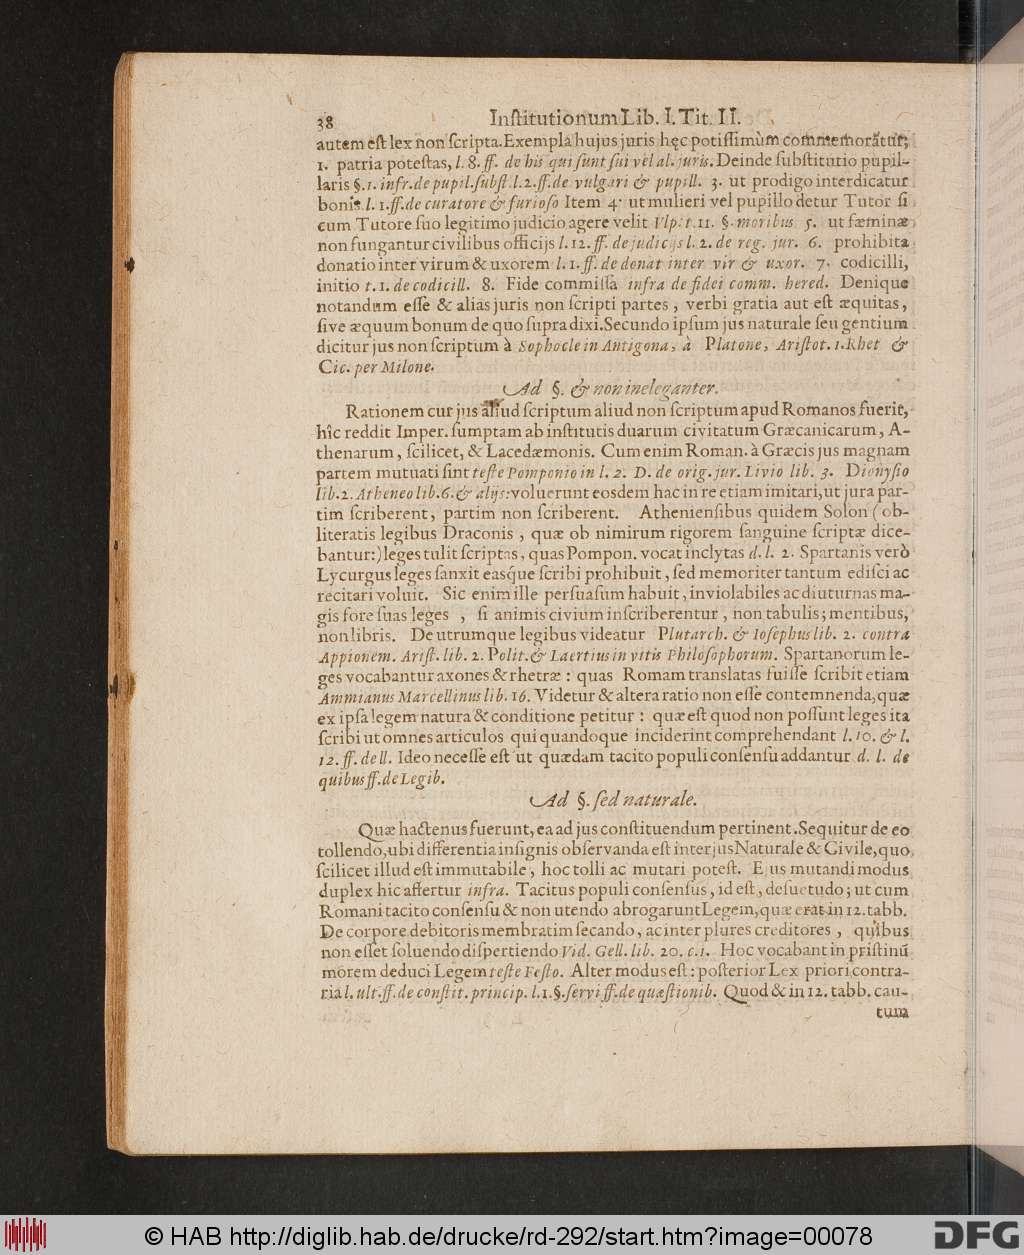 38 Inſtitutionum Lib. I. Tit. II.
autem eſt lex non ſcripta. Exempla hujus juris hęc potiſſimùm commemorātur;
1. patria poteſtas, l. 8. ff. de his qui ſunt ſui vel al. juris. Deinde ſubſtitutio pupil-
laris §. 1. infr. de pupil. ſubſt. l. 2. ff. de vulgari & pupill. 3. ut prodigo interdicatur
bonis l. 1. ff. de curatore & furioſo Item 4. ut mulieri vel pupillo detur Tutor ſi
cum Tutore ſuo legitimo judicio agere velit Vlp. t. 11. §. moribus 5. ut fæminæ
non fungantur civilibus officijs l. 12. ff. de judicijs l. 2. de reg. jur. 6. prohibita
donatio inter virum & uxorem l. 1. ff. de donat inter vir & uxor. 7. codicilli,
initio t. 1. de codicill. 8. Fide commiſſa infra de fidei comm. hered. Denique
notandum eſſe & alias juris non ſcripti partes, verbi gratia aut eſt æquitas,
ſive æquum bonum de quo ſupra dixi. Secundo ipſum jus naturale ſeu gentium
dicitur jus non ſcriptum à Sophocle in Antigona, à Platone, Ariſtot. 1. Rhet &
Cic. per Milone.
Ad §. & non ineleganter.
Rationem cur jus aliud ſcriptum aliud non ſcriptum apud Romanos fuerit,
hîc reddit Imper. ſumptam ab inſtitutis duarum civitatum Græcanicarum, A-
thenarum, ſcilicet, & Lacedæmonis. Cum enim Roman. à Græcis jus magnam
partem mutuati ſint teſte Pomponio in l. 2. D. de orig. jur. Livio lib. 3. Dionyſio
lib. 2. Atheneo lib. 6. & alijs: voluerunt eosdem hac in re etiam imitari, ut jura par-
tim ſcriberent, partim non ſcriberent. Athenienſibus quidem Solon (ob-
literatis legibus Draconis, quæ ob nimirum rigorem ſanguine ſcriptæ dice-
bantur:) leges tulit ſcriptas, quas Pompon. vocat inclytas d. l. 2. Spartanis verò
Lycurgus leges ſanxit easq́ue ſcribi prohibuit, ſed memoriter tantum ediſci ac
recitari voluit. Sic enim ille perſuaſum habuit, inviolabiles ac diuturnas ma-
gis fore ſuas leges, ſi animis civium inſcriberentur, non tabulis; mentibus,
non libris. De utrumque legibus videatur Plutarch. & Ioſephus lib. 2. contra
Appionem. Ariſt. lib. 2. Polit. & Laertius in vitis Philoſophorum. Spartanorum le-
ges vocabantur axones & rhetræ: quas Romam translatas fuiſſe ſcribit etiam
Ammianus Marcellinus lib. 16. Videtur & altera ratio non eſſe contemnenda, quæ
ex ipſa legem natura & conditione petitur: quæ eſt quod non poſſunt leges ita
ſcribi ut omnes articulos qui quandoque inciderint comprehendant l. 10. & l.
12. ff. de ll. Ideo neceſſe eſt ut quædam tacito populi conſenſu addantur d. l. de
quibus ff. de Legib.
Ad §. ſed naturale.
Quæ hactenus fuerunt, ea ad jus conſtituendum pertinent. Sequitur de eo
tollendo, ubi differentia inſignis obſervanda eſt inter jus Naturale & Civile, quo
ſcilicet illud eſt immutabile, hoc tolli ac mutari poteſt. Ejus mutandi modus
duplex hic affertur infra. Tacitus populi conſenſus, id eſt, deſuetudo; ut cum
Romani tacito conſenſu & non utendo abrogarunt Legem, quæ erat in 12. tabb.
De corpore debitoris membratim ſecando, ac inter plures creditores, quibus
non eſſet ſoluendo diſpertiendo Vid. Gell. lib. 20. c. 1. Hoc vocabant in priſtinū
morem deduci Legem teſte Feſto. Alter modus eſt: poſterior Lex priori contra-
ria l. ult. ff. de conſtit. princip. l. 1. §. ſervi ff. de quæſtionib. Quod & in 12. tabb. cau-
tum
© HAB http://diglib.hab.de/drucke/rd-292/start.htm?image=00078
DFG